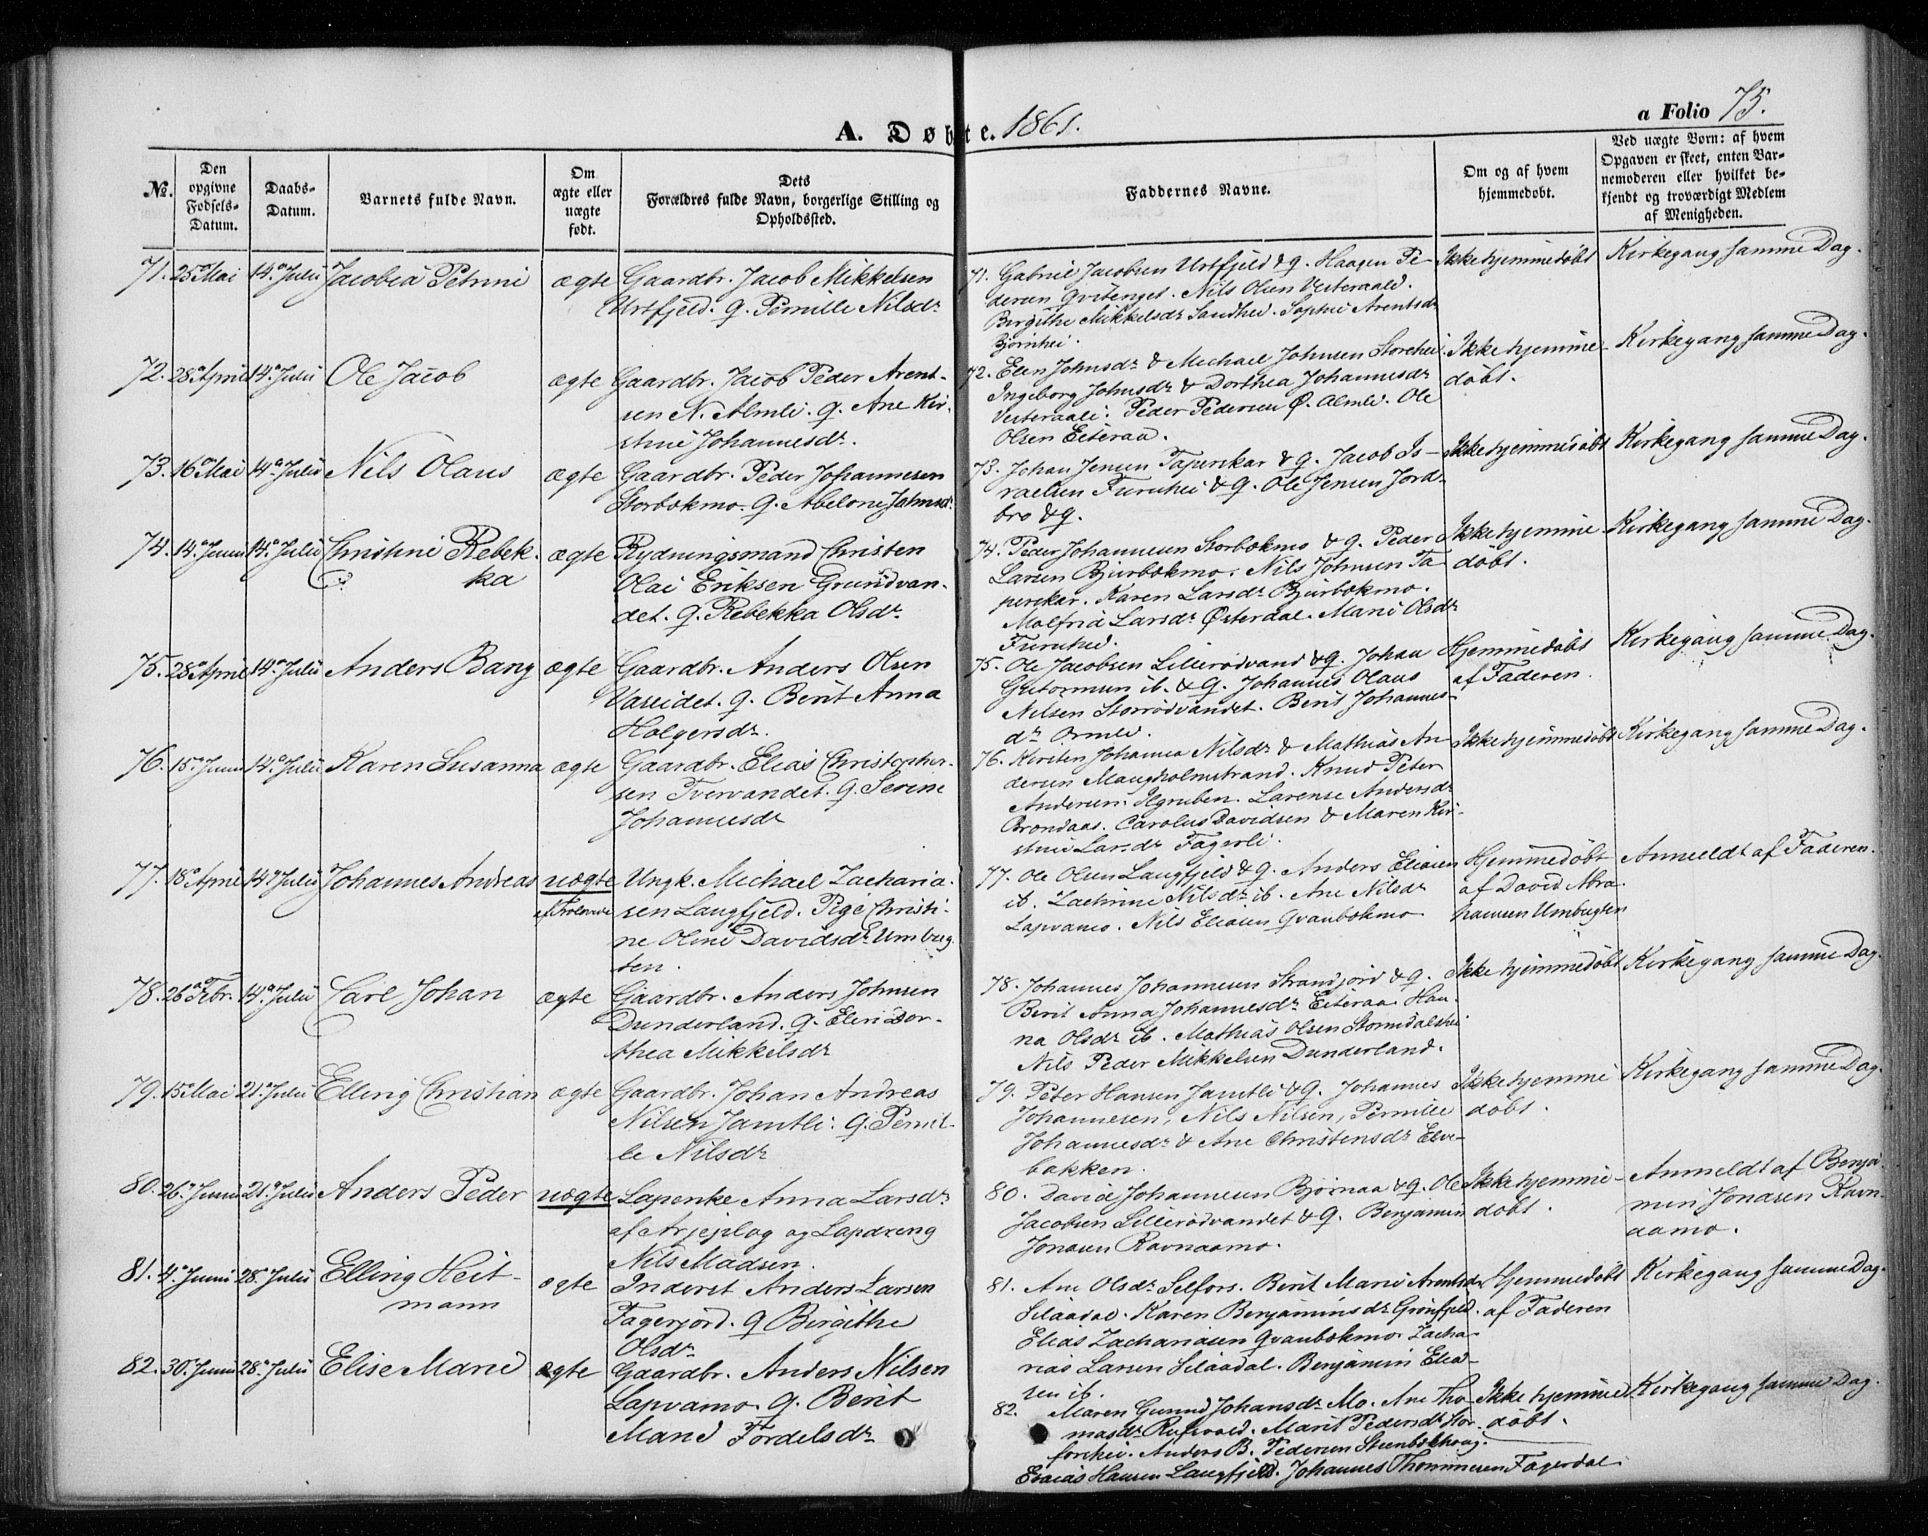 A. Døbte. 1861.
a Folio 75.
No.
Den opgivne Fødsels-Datum.
Daabs-Datum.
Barnets fulde Navn.
Om ægte eller uægte født.
Dets Forældres fulde Navn, borgerlige Stilling og Opholdssted.
Faddernes Navne.
Om og af hvem hjemmedøbt.
Ved uægte Børn: af hvem Opgaven er skeet, enten Barnemoderen eller hvilket bekjendt og troværdigt Medlem af Menigheden.
71. 25 Mai 14 Julii Jacobea Petrine ægte Gaardbr. Jacob Mikkelsen
Urtfjeld. g. Pernille Nilsdr
71. Gabriel Jacobsen Urtfjeld & g. Haagen Pe-
dersen Qvitenget. Nils Olsen Vesteraali.
Birgithe Mikkelsdr Sandhei. Sophie Arentsdr
Bjørnhei.
Ikke hjemmedøbt
Kirkegang samme Dag.
72. 28 April 14 Julii Ole Jacob ægte Gaardbr. Jacob Peder Arent-
sen N. Almli. g. Ane Kir-
stine Johannesdr.
72. Elen Johnsdr & Michael Johnsen Storehei.
Ingeborg Johnsdr & Dorthea Johannesdr
Vesteraali. Peder Pedersen Ø. Almli. Ole
Olsen Eiteraa.
Ikke hjemme-
døbt.
Kirkegang samme Dag.
73. 16 Mai 14 Julii Nils Olaus ægte Gaardbr. Peder Johannesen
Storbokmo. g. Abelone Johnsdr.
73. Johan Jensen Taperskar & g. Jacob Is-
raelsen Furuhei & g. Ole Jensen Jord-
bro & g.
Ikke hjemmedøbt
Kirkegang samme Dag.
74. 14 Junii 14 Julii Christine Rebek-
ka
ægte Rydningsmand Christen
Olai Eriksen Grundvan-
det. g. Rebekka Olsdr.
74. Peder Johannesen Storbokmo & g. Peder
Larsen Bjurbokmo. Nils Johnsen Ta
perskar. Karen Larsdr Bjurbokmo.
Malfrid Larsdr Østerdal. Marie Olsdr
Furuhei.
Ikke hjemme
døbt.
Kirkegang samme Dag.
75. 28 April 14 Julii Anders Bang ægte Gaardbr. Anders Olsen
Vaseidet. g. Berit Anna
Holgersdr.
75. Ole Jacobsen Lillerødvand & g. Johan
ib. & g. Johannes Olaus
Nilsen Storrødvandet. Berit Johannes-
dr Ormli.
Hjemmedøbt
af Faderen.
Kirkegang samme Dag.
76. 15 Junii 14 Julii Karen Susanna ægte Gaardbr. Elias Christopher-
sen Tvervandet. g. Serine
Johannesdr
76. Kirsten Johanna Nilsdr & Mathias An
dersen Maugholmstrand. Knud Peter
Andersen Ilgruben. Larense Andersdr
Brendaas. Carolus Davidsen & Maren Kir-
stine Larsdr Fagerli.
Ikke hjemmedøbt
Kirkegang samme Dag.
77. 18 April 14 Julii Johannes Andreas uægte
af Trolovede
Ungk. Michael Zacharia-
sen Langfjeld. Pige Christi-
ne Oline Davidsdr Umbug-
ten.
77. Ole Olsen Langfjeld & g. Anders Eliasen
ib. Zachrine Nilsdr ib. Ane Nilsdr
Lapvamo. Nils Eliasen Qvanbokmo.
Hjemmedøbt
af David Abra-
hamsen Umbugten
Anmeldt af Faderen.
78. 26 Febr. 14 Julii Carl Johan ægte Gaardbr. Anders Johnsen
Dunderland. g. Elen Dor-
thea Mikkelsdr
78. Johannes Johannesen Strandjord & g.
Berit Anna Johannesdr Eiteraa. Han-
na Olsdr ib. Mathias Olsen Stormdalshei
Nils Peder Mikkelsen Dunderland.
Ikke hjemmedøbt
Kirkegang samme Dag.
79. 15 Mai 21 Julii Elling Christian ægte Gaardbr. Johan Andreas
Nilsen Jamtli. g. Pernil-
le Nilsdr
79. Peter Hansen Jamtli & g. Johannes
Johannesen, Nils Nilsen, Pernille
Johannesdr & Ane Christensdr Elve-
bakken.
Ikke hjemme
døbt.
Kirkegang samme Dag.
80. 26 Junii 21 Julii Anders Peder uægte Lapenke Anna Larsdr
af Arjeplog og Lapdreng
Nils Madsen.
80. David Johannesen Bjørnaa & g. Ole
Jacobsen Lillerødvandet & g. Benjamin
Jonasen Ravnaamo.
Ikke hjemme-
døbt.
Anmeldt af Benja
min Jonasen Ravn-
aamo.
81. 4 Junii 28 Julii Elling Heit-
mann
ægte Inderst Anders Larsen
Fagerjord. g Birgithe
Olsdr
81. Ane Olsdr Selfors. Berit Marie Arentsdr
Silaadal. Karen Benjaminsdr Grønfjeld.
Elias Zachariasen Qvanbokmo. Zacha-
rias Larsen Silaadal. Benjamin Elia-
sen ib.
Hjemmedøbt
af Faderen
Kirkegang samme Dag.
82. 30 Junii 28 Julii Elise Marie ægte Gaardbr. Anders Nilsen
Lapvamo. g. Berit
Marie Fordelsdr
82. Maren Gurine Johansdr Mo. Ane Tho
masdr Rufsvold. Marit Pedersdr Stor-
forshei. Anders B. Pedersen Steenbekhaug.
Esaias Hansen Langfjeld. Johannes Thommesen Fagerdal.
Ikke hjemme
døbt.
Kirkegang samme Dag.